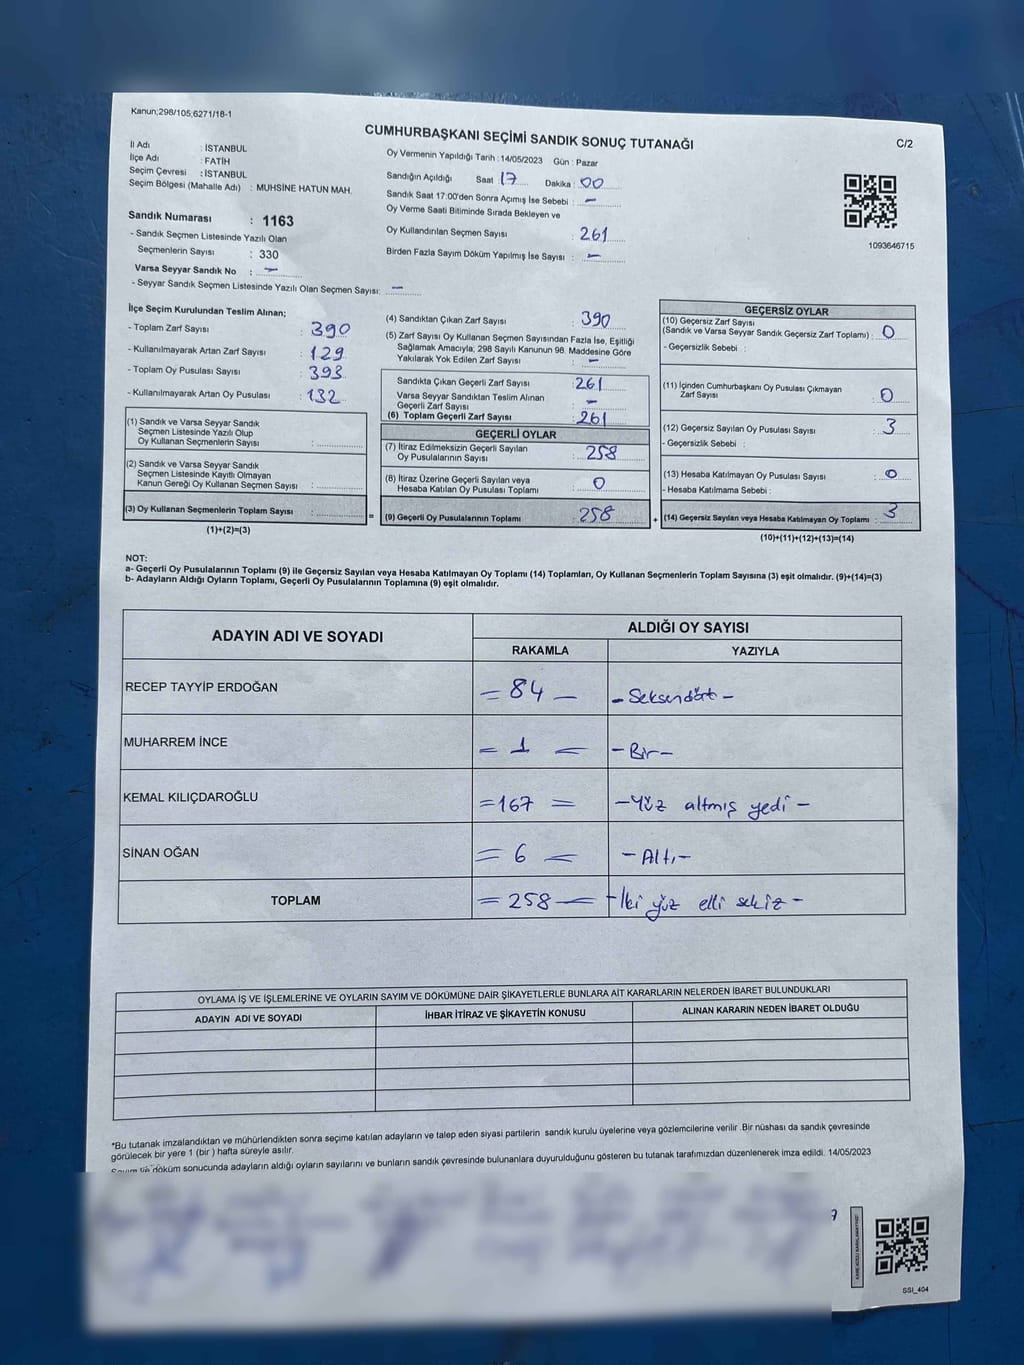 Kanun;298/105,6271/18-1
CUMHURBAŞKANI SEÇİMİ SANDIK SONUÇ TUTANAĞI
C/2
İl Adı : İSTANBUL
İlçe Adı : FATİH
Seçim Çevresi : İSTANBUL
Seçim Bölgesi (Mahalle Adı) : MUHSİNE HATUN MAH.
Sandık Numarası : 1163
- Sandık Seçmen Listesinde Yazılı Olan
Seçmenlerin Sayısı : 330
Varsa Seyyar Sandık No : -
- Seyyar Sandık Seçmen Listesinde Yazılı Olan Seçmen Sayısı: -
Oy Vermenin Yapıldığı Tarih : 14/05/2023 Gün : Pazar
Sandığın Açıldığı Saat 17 Dakika : 00
Sandık Saat 17:00'den Sonra Açımış İse Sebebi : -
Oy Verme Saati Bitiminde Sırada Bekleyen ve
Oy Kullandırılan Seçmen Sayısı : 261
Birden Fazla Sayım Döküm Yapılmış İse Sayısı : -
1093646715
İlçe Seçim Kurulundan Teslim Alınan;
- Toplam Zarf Sayısı : 390
- Kullanılmayarak Artan Zarf Sayısı : 129
- Toplam Oy Pusulası Sayısı : 393
- Kullanılmayarak Artan Oy Pusulası : 132
(1) Sandık ve Varsa Seyyar Sandık
Seçmen Listesinde Yazılı Olup
Oy Kullanan Seçmenlerin Sayısı :
(2) Sandık ve Varsa Seyyar Sandık
Seçmen Listesinde Kayıtlı Olmayan
Kanun Gereği Oy Kullanan Seçmen Sayısı :
(3) Oy Kullanan Seçmenlerin Toplam Sayısı :
(1)+(2)=(3)
(4) Sandıktan Çıkan Zarf Sayısı : 390
(5) Zarf Sayısı Oy Kullanan Seçmen Sayısından Fazla İse, Eşitliği
Sağlamak Amacıyla; 298 Sayılı Kanunun 98. Maddesine Göre
Yakılarak Yok Edilen Zarf Sayısı : -
Sandıkta Çıkan Geçerli Zarf Sayısı : 261
Varsa Seyyar Sandıktan Teslim Alınan
Geçerli Zarf Sayısı : -
(6) Toplam Geçerli Zarf Sayısı : 261
GEÇERLİ OYLAR
(7) İtiraz Edilmeksizin Geçerli Sayılan
Oy Pusulalarının Sayısı : 258
(8) İtiraz Üzerine Geçerli Sayılan veya
Hesaba Katılan Oy Pusulası Toplamı : 0
= (9) Geçerli Oy Pusulalarının Toplamı : 258
GEÇERSİZ OYLAR
(10) Geçersiz Zarf Sayısı
(Sandık ve Varsa Seyyar Sandık Geçersiz Zarf Toplamı) : 0
- Geçersizlik Sebebi :
(11) İçinden Cumhurbaşkanı Oy Pusulası Çıkmayan
Zarf Sayısı : 0
(12) Geçersiz Sayılan Oy Pusulası Sayısı : 3
- Geçersizlik Sebebi :
(13) Hesaba Katılmayan Oy Pusulası Sayısı : 0
- Hesaba Katılmama Sebebi :
+ (14) Geçersiz Sayılan veya Hesaba Katılmayan Oy Toplamı : 3
(10)+(11)+(12)+(13)=(14)
NOT:
a- Geçerli Oy Pusulalarının Toplamı (9) ile Geçersiz Sayılan veya Hesaba Katılmayan Oy Toplamı (14) Toplamları, Oy Kullanan Seçmenlerin Toplam Sayısına (3) eşit olmalıdır. (9)+(14)=(3)
b- Adayların Aldığı Oyların Toplamı, Geçerli Oy Pusulalarının Toplamına (9) eşit olmalıdır.
ADAYIN ADI VE SOYADI ALDIĞI OY SAYISI
RAKAMLA YAZIYLA
RECEP TAYYİP ERDOĞAN = 84 - - Seksendört -
MUHARREM İNCE = 1 = - Bir -
KEMAL KILIÇDAROĞLU = 167 = - Yüz altmış yedi -
SİNAN OĞAN = 6 = - Altı -
TOPLAM = 258 = - İki yüz elli sekiz -
OYLAMA İŞ VE İŞLEMLERİNE VE OYLARIN SAYIM VE DÖKÜMÜNE DAİR ŞİKAYETLERLE BUNLARA AİT KARARLARIN NELERDEN İBARET BULUNDUKLARI
ADAYIN ADI VE SOYADI İHBAR İTİRAZ VE ŞİKAYETİN KONUSU ALINAN KARARIN NEDEN İBARET OLDUĞU
*Bu tutanak imzalandıktan ve mühürlendikten sonra seçime katılan adayların ve talep eden siyasi partilerin sandık kurulu üyelerine veya gözlemcilerine verilir .Bir nüshası da sandık çevresinde
görülecek bir yere 1 (bir ) hafta süreyle asılır.
Sayım ve döküm sonucunda adayların aldığı oyların sayılarını ve bunların sandık çevresinde bulunanlara duyurulduğunu gösteren bu tutanak tarafımızdan düzenlenerek imza edildi. 14/05/2023
SSI_404